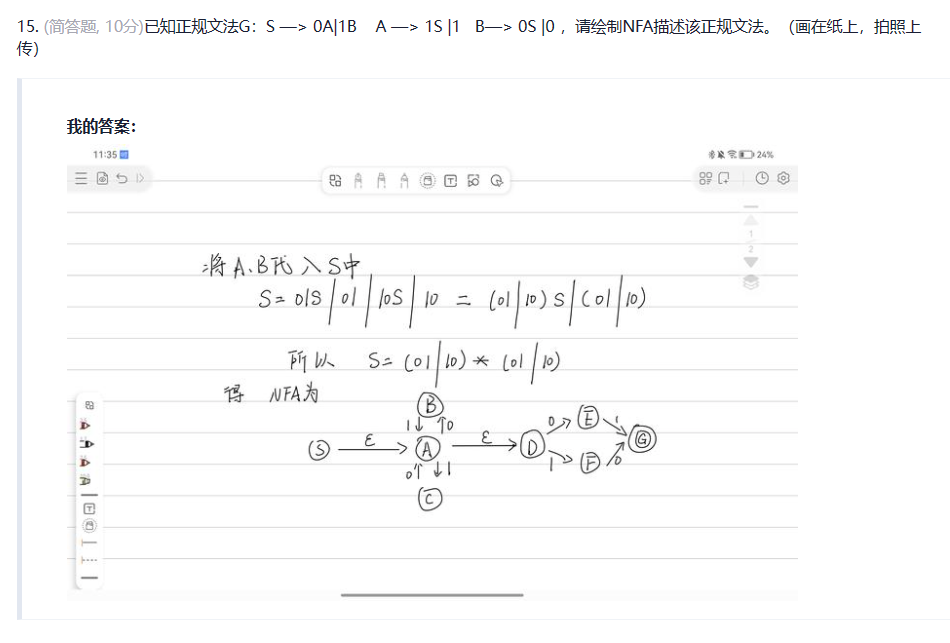 15. (简答题, 10分)已知正规文法G：S —> 0A|1B A —> 1S |1 B—> 0S |0 ，请绘制NFA描述该正规文法。（画在纸上，拍照上
传）
我的答案：
11:35
24%
1
2
将A、B代入S中
S= 01S | 01 | 10S | 10 = (01|10)S|(01|10)
所以 S= (01|10)* (01|10)
得 NFA为
B
1↓ ↑0
0 E 1
S ε A ε D G
1 F 0
0↑ ↓1
C